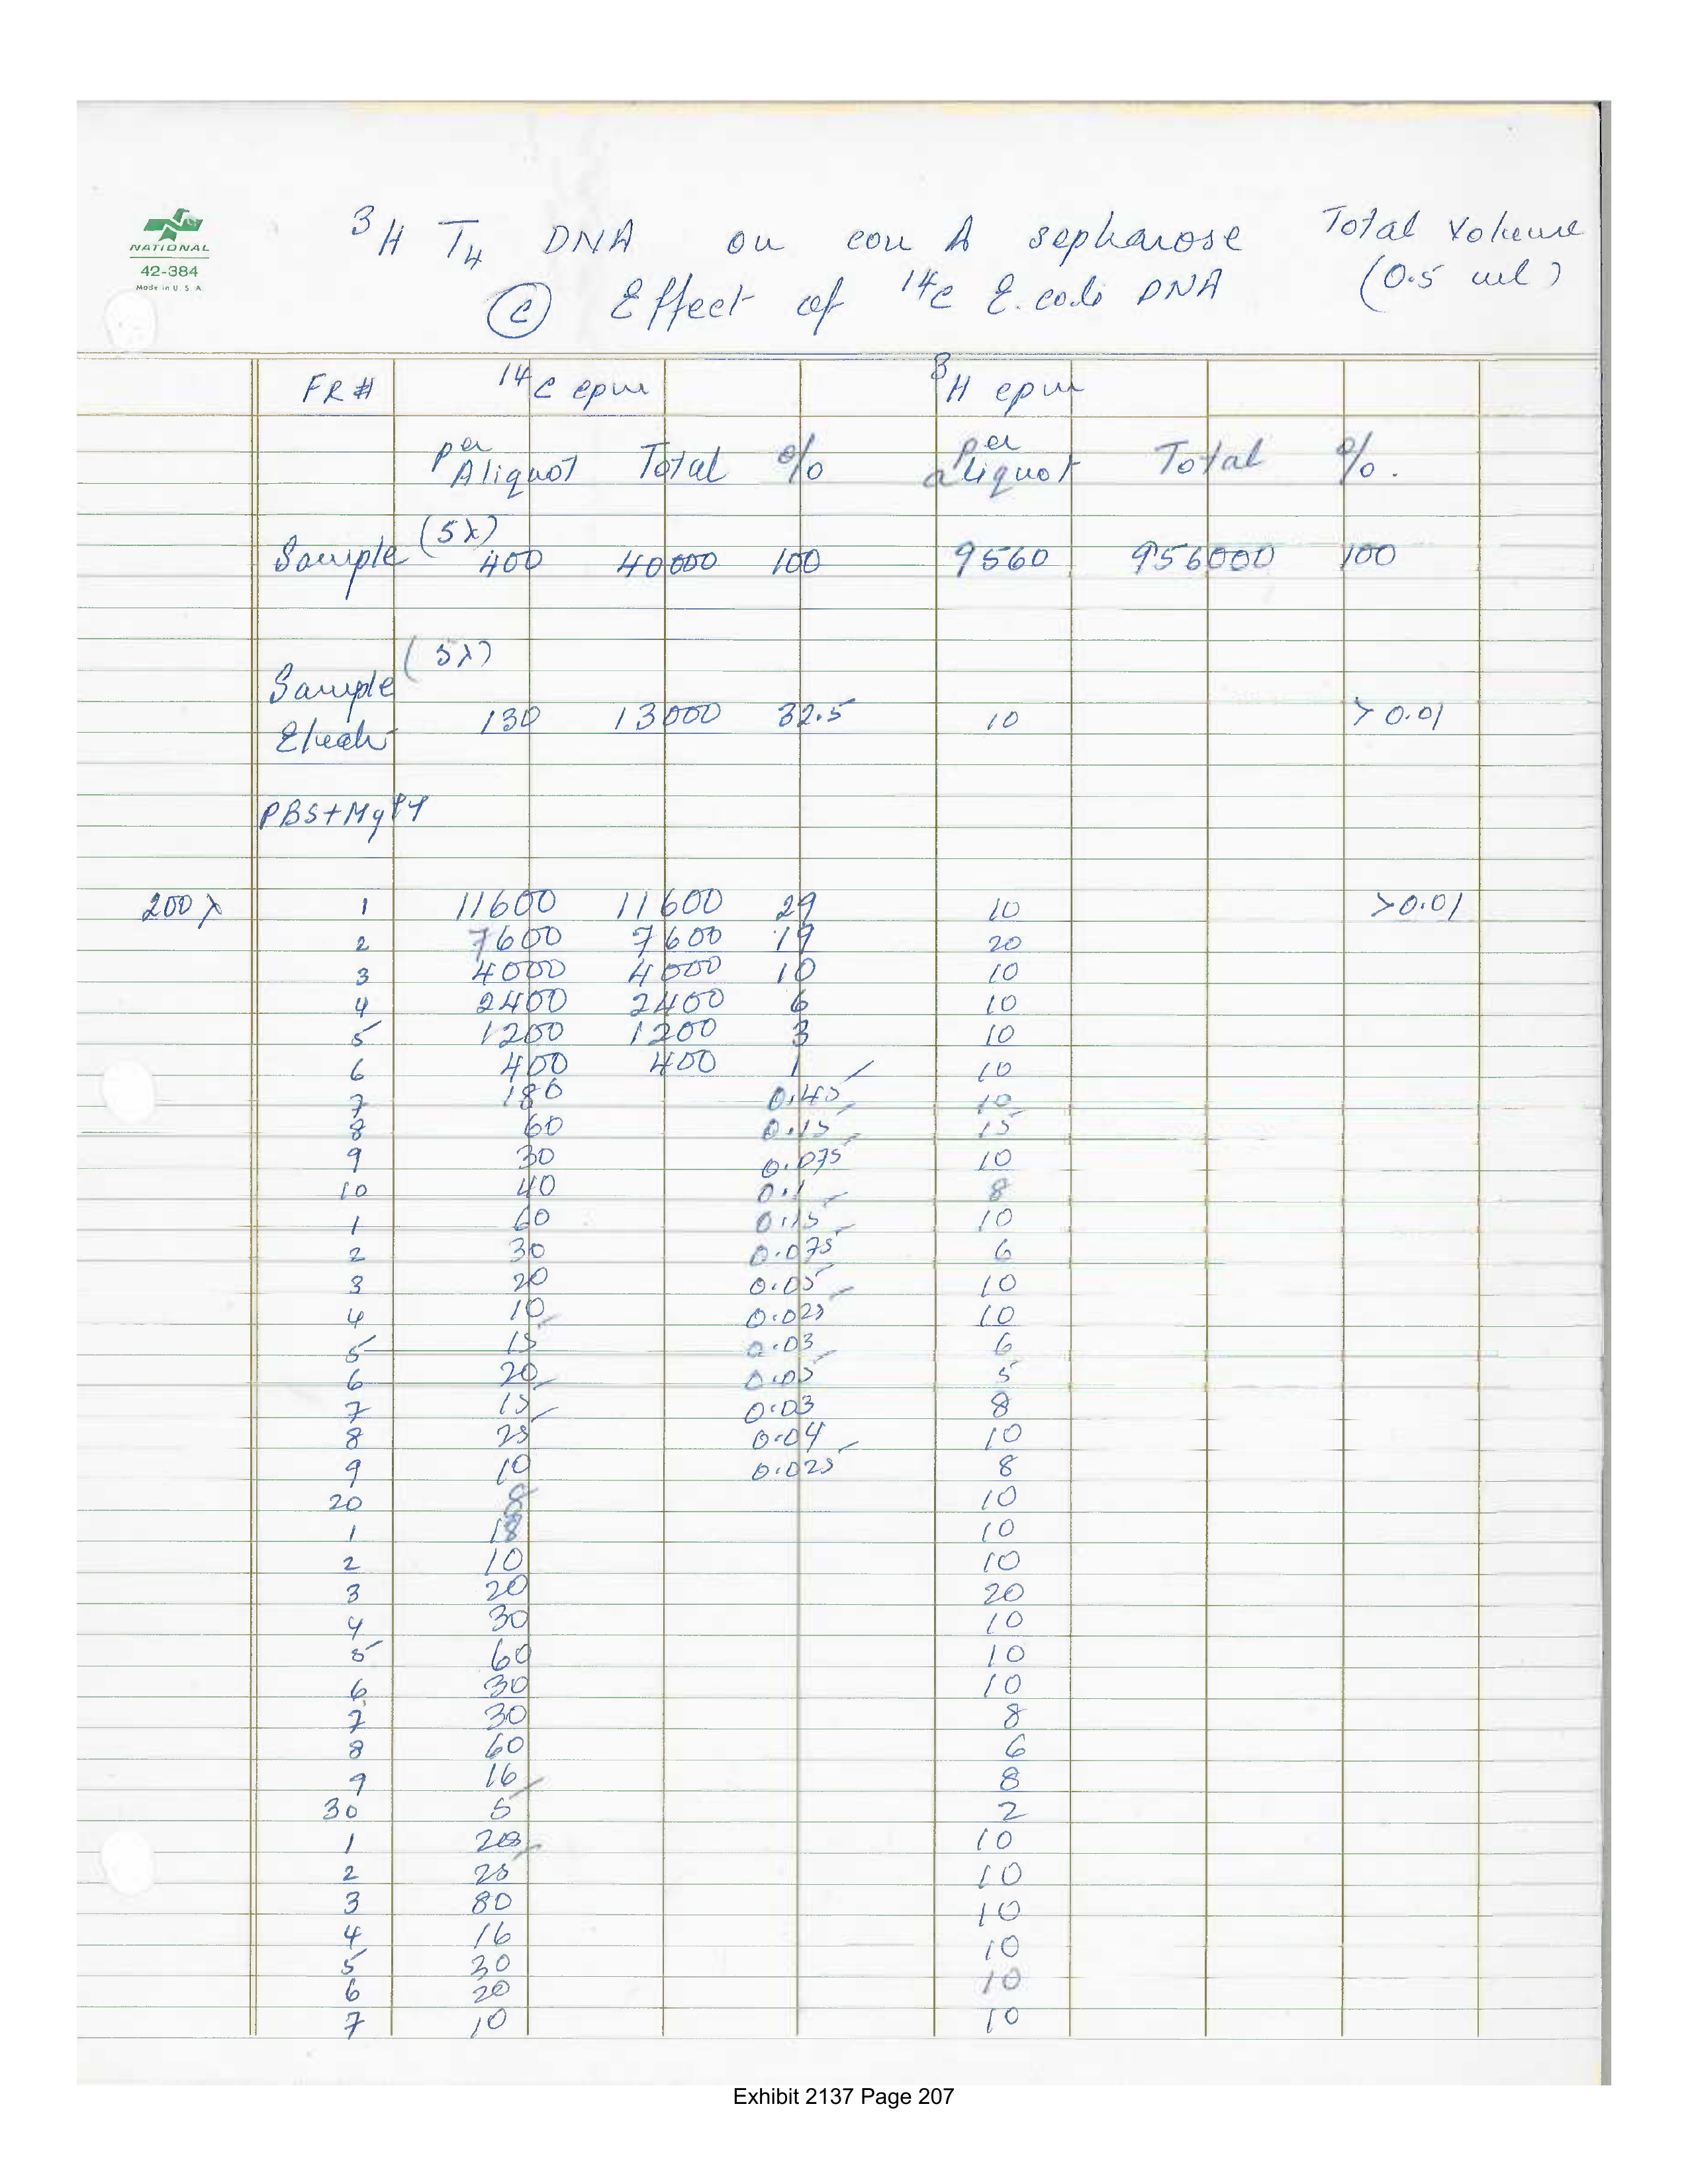 NATIONAL
42-384
Made in U S A
³H T₄ DNA on con A sepharose Total Volume
(C) Effect of ¹⁴C E. coli DNA (0.5 ml)
FR # ¹⁴C cpm ³H cpm
per Aliquot Total % per aliquot Total %.
Sample (5λ) 400 40000 100 9560 956000 100
Sample (5λ)
130 13000 32.5 10 > 0.01
PBS+Mg++
200 λ 1 11600 11600 29 10 >0.01
2 7600 7600 19 20
3 4000 4000 10 10
4 2400 2400 6 10
5 1200 1200 3 10
6 400 400 1 10
7 180 0.45 10
8 60 0.15 15
9 30 0.075 10
10 40 0.1 8
1 60 0.15 10
2 30 0.075 6
3 20 0.05 10
4 10 0.025 10
5 15 0.03 6
6 20 0.05 5
7 15 0.03 8
8 25 0.04 10
9 10 0.025 8
20 8 10
1 18 10
2 10 10
3 20 20
4 30 10
5 60 10
6 30 10
7 30 8
8 60 6
9 16 8
30 5 2
1 10
2 25 10
3 80 10
4 16 10
5 30 10
6 20 10
7 10 10
Exhibit 2137 Page 207